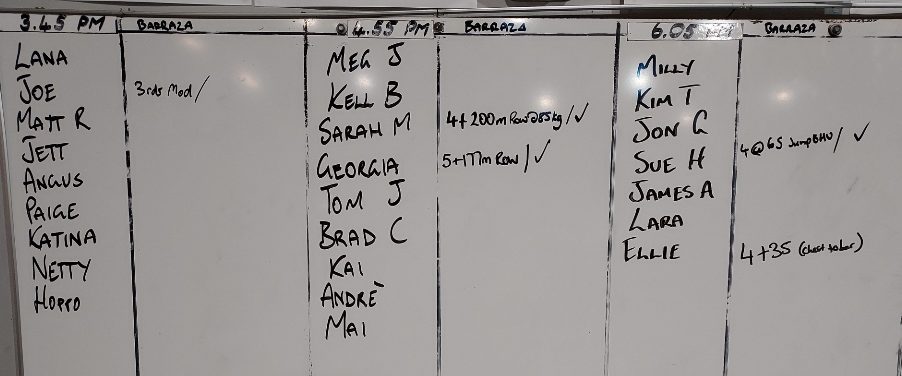 3.45 PM
BARRAZA
LANA
JOE
3rds Mod /
MATT R
JETT
ANGUS
PAIGE
KATINA
NETTY
HOPPO
4.55 PM
BARRAZA
MEG J
KELL B
SARAH M
4+200m Row @55kg / ✓
GEORGIA
5+177m Row / ✓
TOM J
BRAD C
KAI
ANDRÈ
MAI
6.05 PM
BARRAZA
MILLY
KIM T
JON G
SUE H
4@65 Jump BMU / ✓
JAMES A
LARA
ELLIE
4+35 (chest to bar)